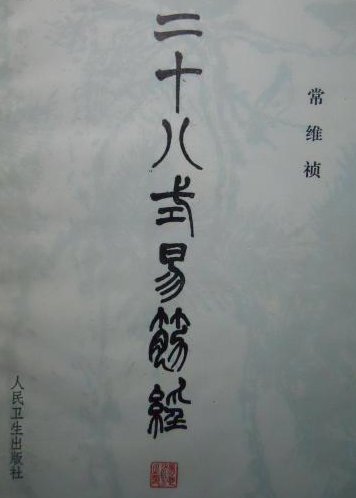 二十八式易筋經
常维祯
人民卫生出版社